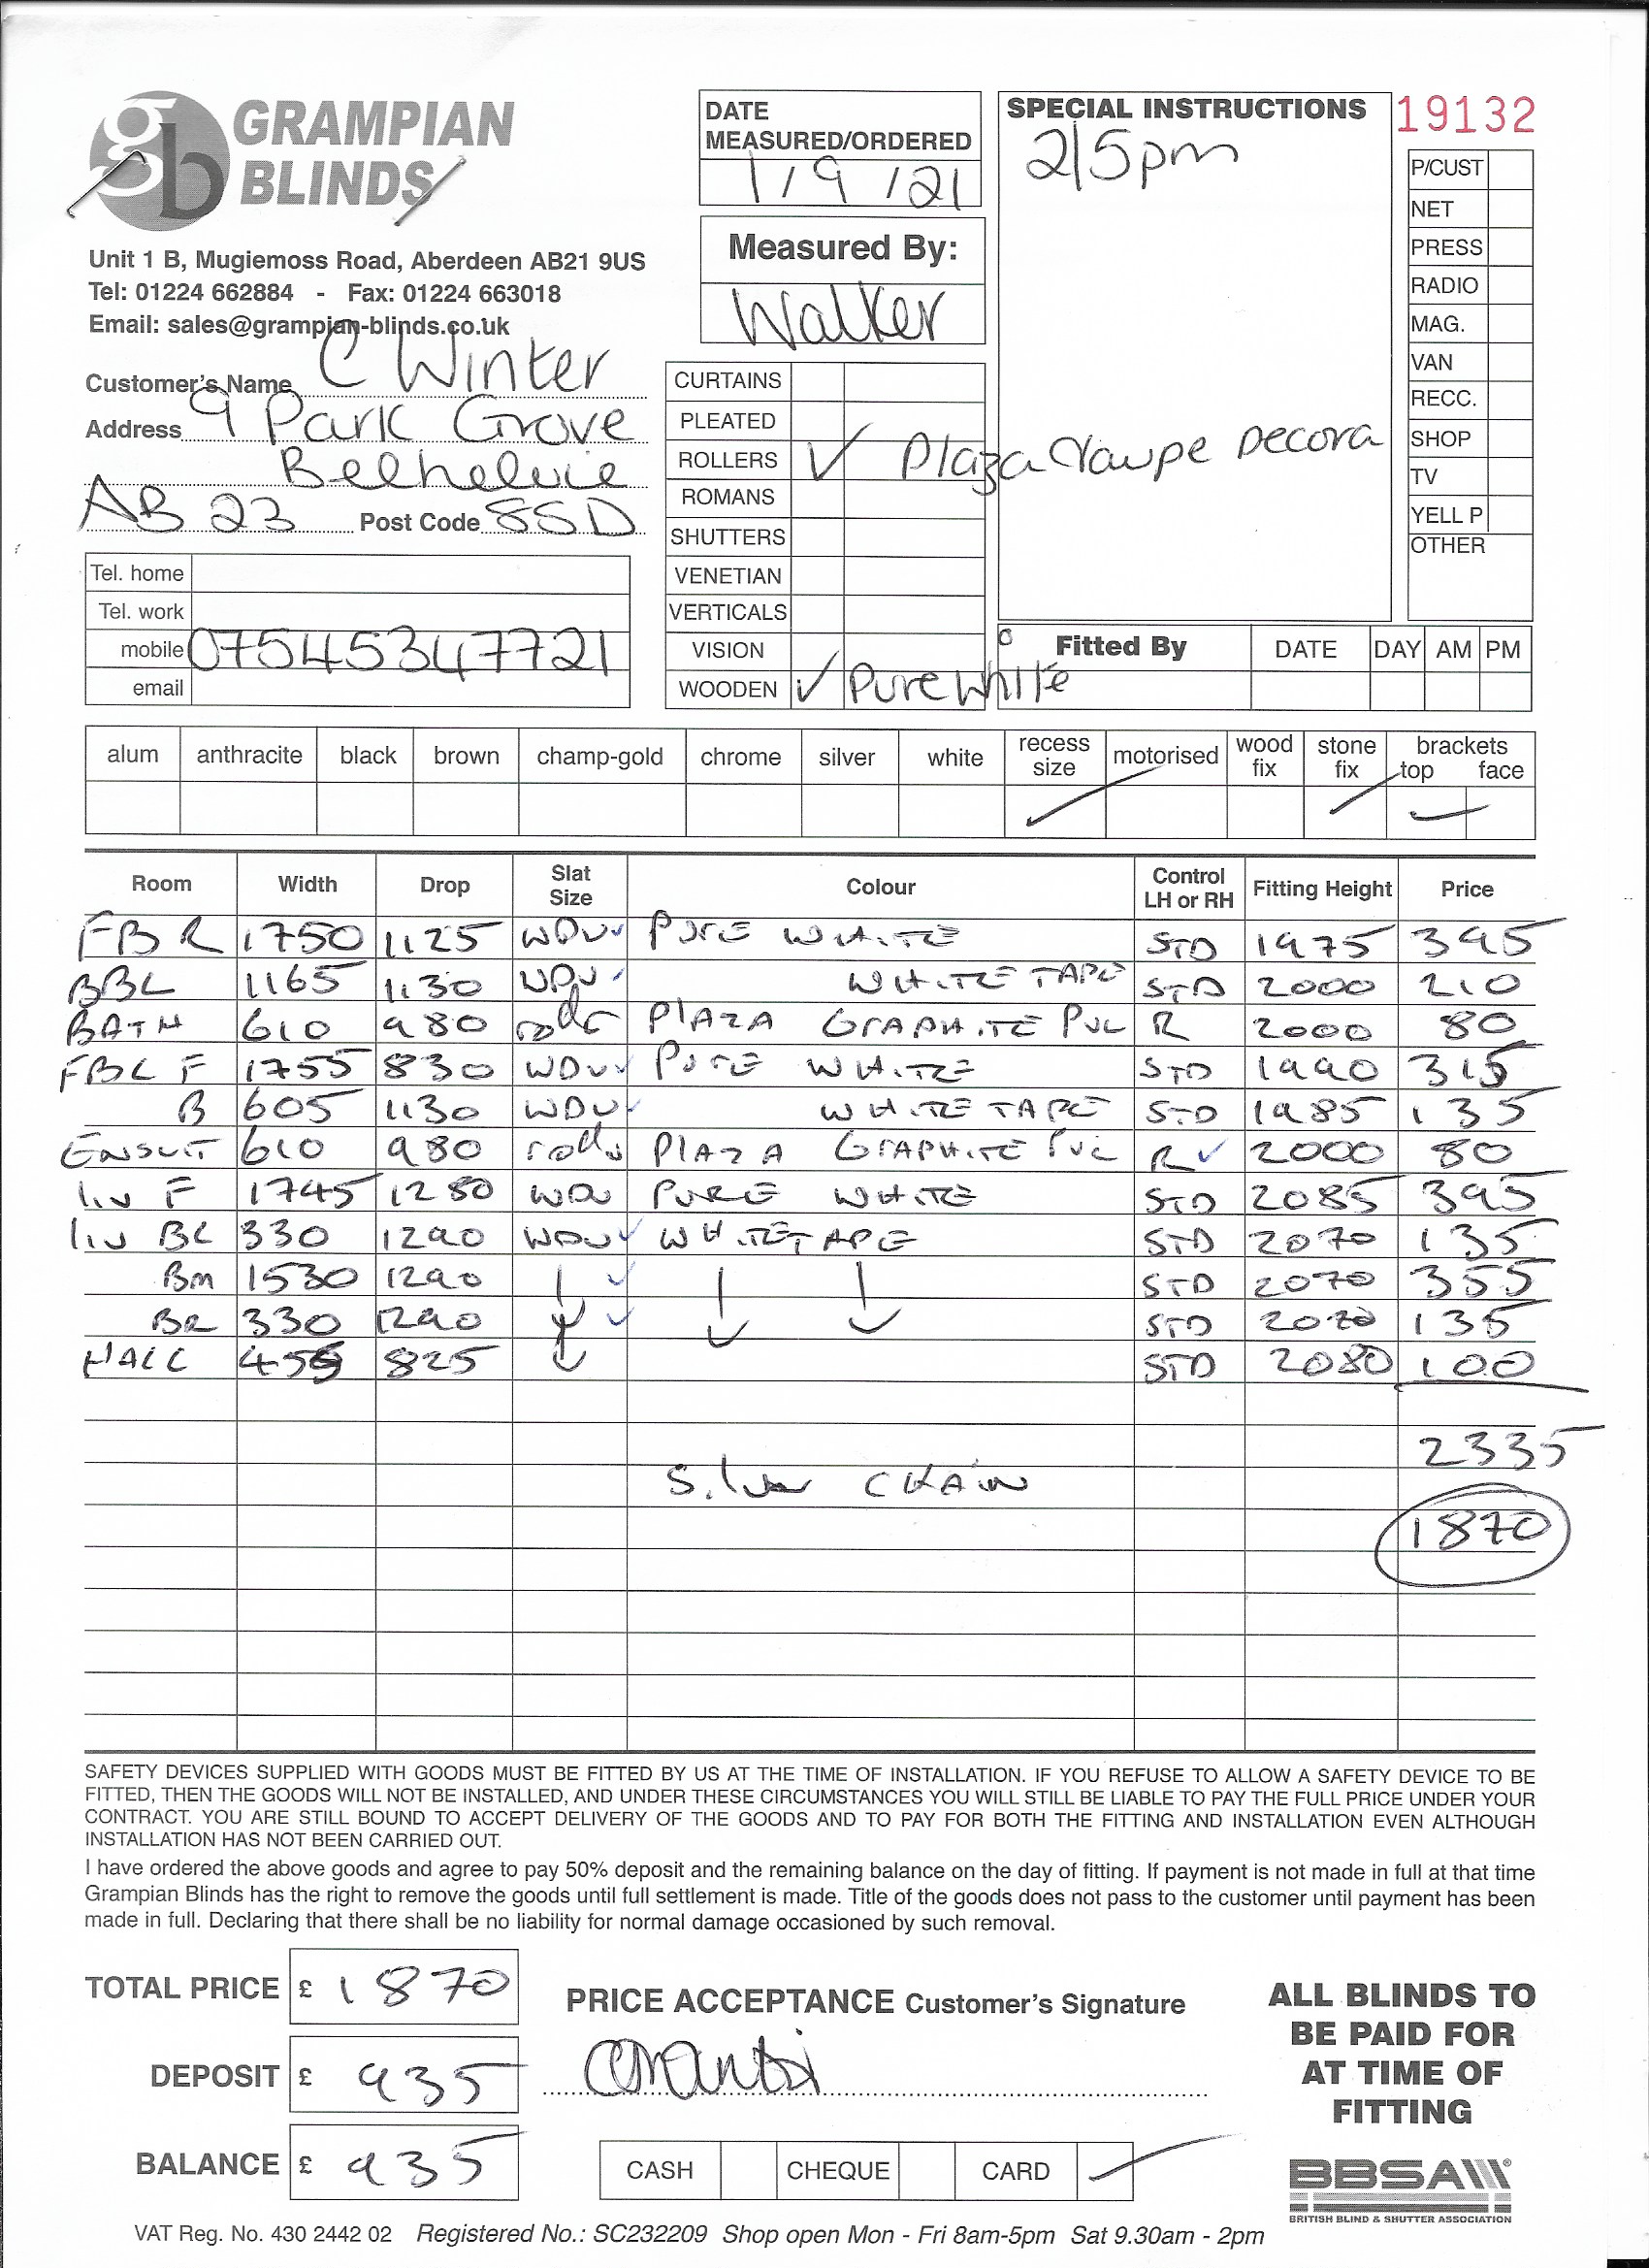 GRAMPIAN
BLINDS
Unit 1 B, Mugiemoss Road, Aberdeen AB21 9US
Tel: 01224 662884 - Fax: 01224 663018
Email: sales@grampian-blinds.co.uk
Customer's Name C Winter
Address 9 Park Grove
Belhelvie
AB 23 Post Code 8SD
Tel. home
Tel. work
mobile 07545347721
email
DATE
MEASURED/ORDERED
1/9/21
Measured By:
Walker
CURTAINS
PLEATED
ROLLERS ✓ Plaza Taupe Decora
ROMANS
SHUTTERS
VENETIAN
VERTICALS
VISION
WOODEN ✓ Pure White
SPECIAL INSTRUCTIONS
2/5pm
19132
P/CUST
NET
PRESS
RADIO
MAG.
VAN
RECC.
SHOP
TV
YELL P
OTHER
Fitted By DATE DAY AM PM
alum anthracite black brown champ-gold chrome silver white recess size motorised wood fix stone fix brackets top face
Room Width Drop Slat Size Colour Control LH or RH Fitting Height Price
FBR 1750 1125 WDV PURE WHITE STD 1975 395
BBL 1165 1130 WDV WHITE TAPE STD 2000 210
BATH 610 980 roller PLAZA GRAPHITE PVC R 2000 80
FBL F 1755 830 WDV PURE WHITE STD 1990 315
B 605 1130 WDV WHITE TAPE STD 1985 135
ENSUIT 610 980 roller PLAZA GRAPHITE PVC R 2000 80
liv F 1745 1280 WDV PURE WHITE STD 2085 395
liv BL 330 1290 WDV WHITE TAPE STD 2070 135
BM 1530 1290 STD 2070 355
BR 330 1290 STD 2070 135
HALL 455 825 STD 2080 100
2335
Silver CHAIN
1870
SAFETY DEVICES SUPPLIED WITH GOODS MUST BE FITTED BY US AT THE TIME OF INSTALLATION. IF YOU REFUSE TO ALLOW A SAFETY DEVICE TO BE
FITTED, THEN THE GOODS WILL NOT BE INSTALLED, AND UNDER THESE CIRCUMSTANCES YOU WILL STILL BE LIABLE TO PAY THE FULL PRICE UNDER YOUR
CONTRACT. YOU ARE STILL BOUND TO ACCEPT DELIVERY OF THE GOODS AND TO PAY FOR BOTH THE FITTING AND INSTALLATION EVEN ALTHOUGH
INSTALLATION HAS NOT BEEN CARRIED OUT.
I have ordered the above goods and agree to pay 50% deposit and the remaining balance on the day of fitting. If payment is not made in full at that time
Grampian Blinds has the right to remove the goods until full settlement is made. Title of the goods does not pass to the customer until payment has been
made in full. Declaring that there shall be no liability for normal damage occasioned by such removal.
TOTAL PRICE £ 1870
DEPOSIT £ 935
BALANCE £ 935
PRICE ACCEPTANCE Customer's Signature
CASH CHEQUE CARD ✓
ALL BLINDS TO
BE PAID FOR
AT TIME OF
FITTING
BBSA
BRITISH BLIND & SHUTTER ASSOCIATION
VAT Reg. No. 430 2442 02 Registered No.: SC232209 Shop open Mon - Fri 8am-5pm Sat 9.30am - 2pm